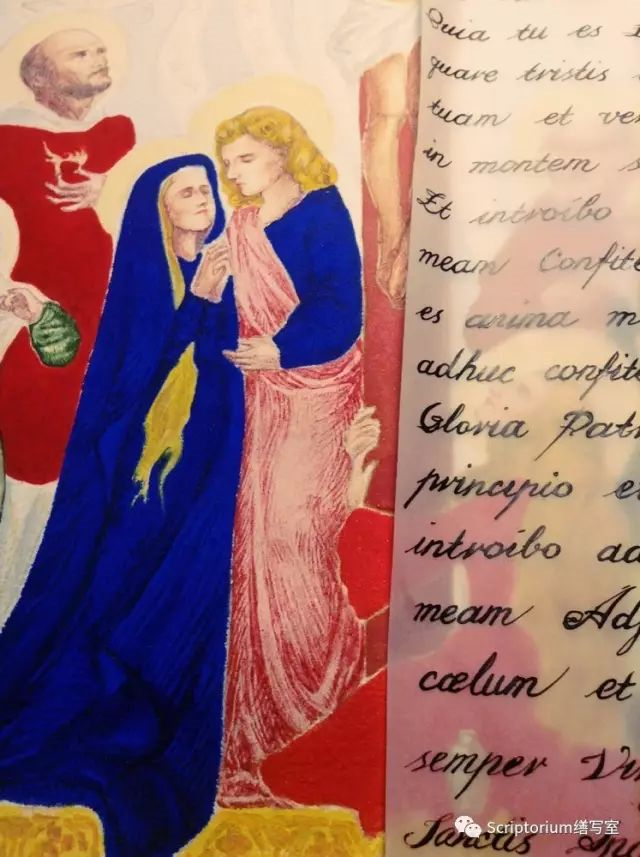 Quia tu es
quare tristis
tuam et ve
in montem s
Et introibo
meam Confite
es anima m
adhuc confite
Gloria Patr
principio e
introibo ad
meam Adj
cælum et
semper Vi
Sanctis
Scriptorium缮写室